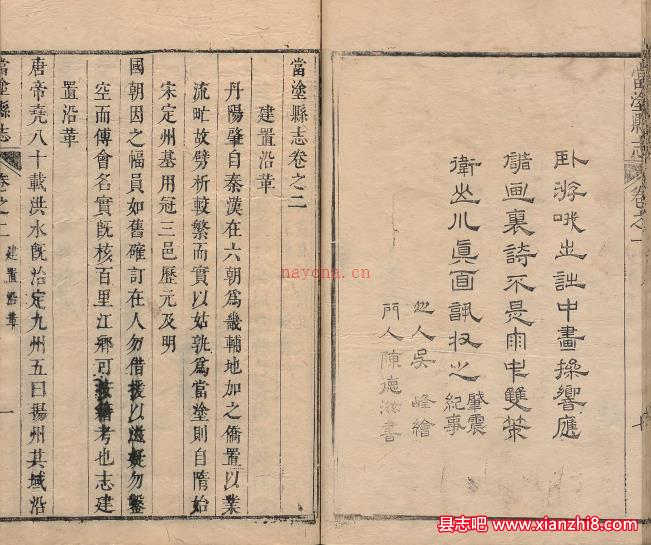 當塗縣志 卷之一
臥游哦出中畫操響應
画裏詩不是雙策
真面之
肇震
紀事
人吳峰繪
門人陳德滋書
當塗縣志卷之二
建置沿革
丹陽肇自秦漢在六朝爲畿輔地加之僑置以業
流甿故劈析較繁而實以姑孰爲當塗則自隋始
宋定州基用冠三邑歷元及明
國朝因之幅員如舊確訂在人勿借援以滋疑勿鑿
空而傅會名實旣核百里江鄉可披籍考也志建
置沿革
唐帝堯八十載洪水旣治定九州五曰揚州其域沿
當塗縣志 卷之二 建置沿革 一
nayona.cn
县志吧 www.xianzhi8.com